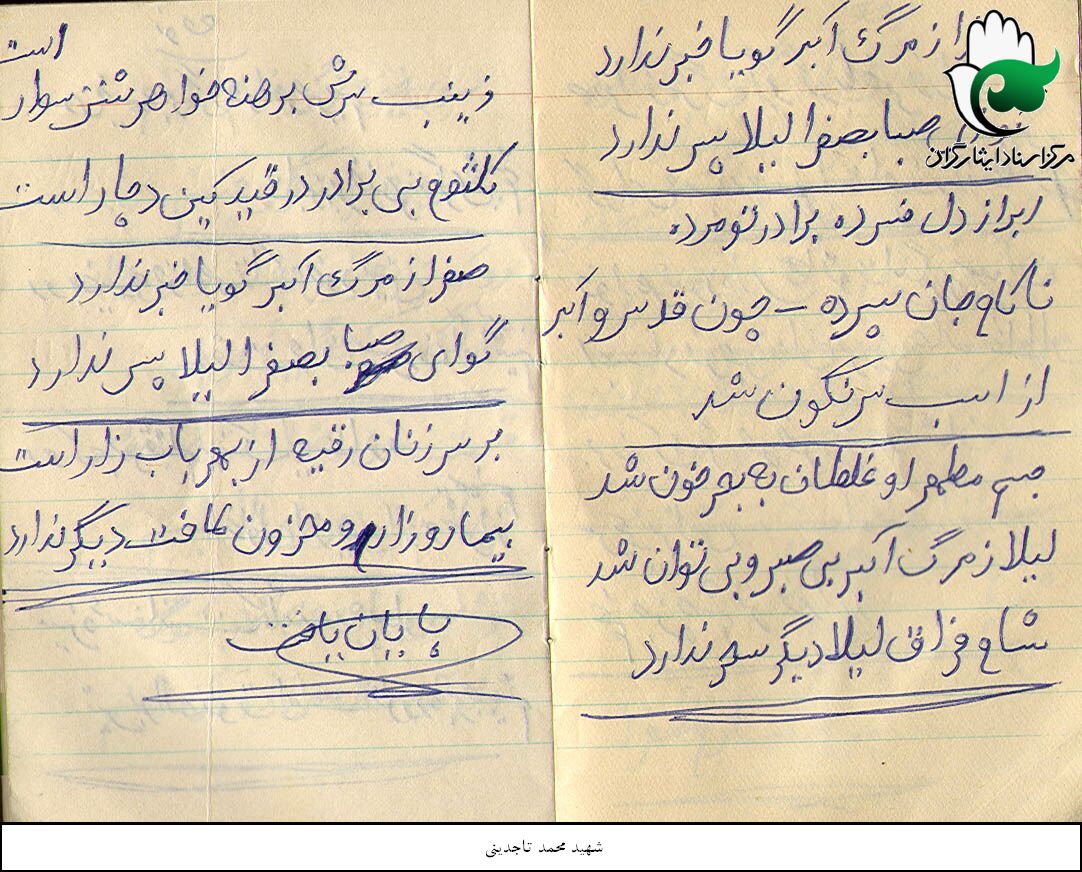 از مرگ اکبر گویا خبر ندارد
صبا بصغرا لیلا پسر ندارد
ابراز دل فسرده برادر تو مرده
ناکام جان سپرده – چون قدس و اکبر
از اسب سرنگون شد
جسم مطهر او غلطان به بحر خون شد
لیلا ز مرگ اکبر بی صبر و بی توان شد
شام فراق لیلا دیگر سحر ندارد
زینب سرش برهنه خواهر شتر سوار است
کلثوم بی برادر در قید کین دچار است
صغرا ز مرگ اکبر گویا خبر ندارد
گو ای صبا بصغرا لیلا پسر ندارد
بر سر زنان رقیه از بهر باب زار است
بیمار و زار و محزون طاقت دیگر ندارد
پایان یافت
مرکز اسناد ایثارگران
شهید محمد تاجدینی